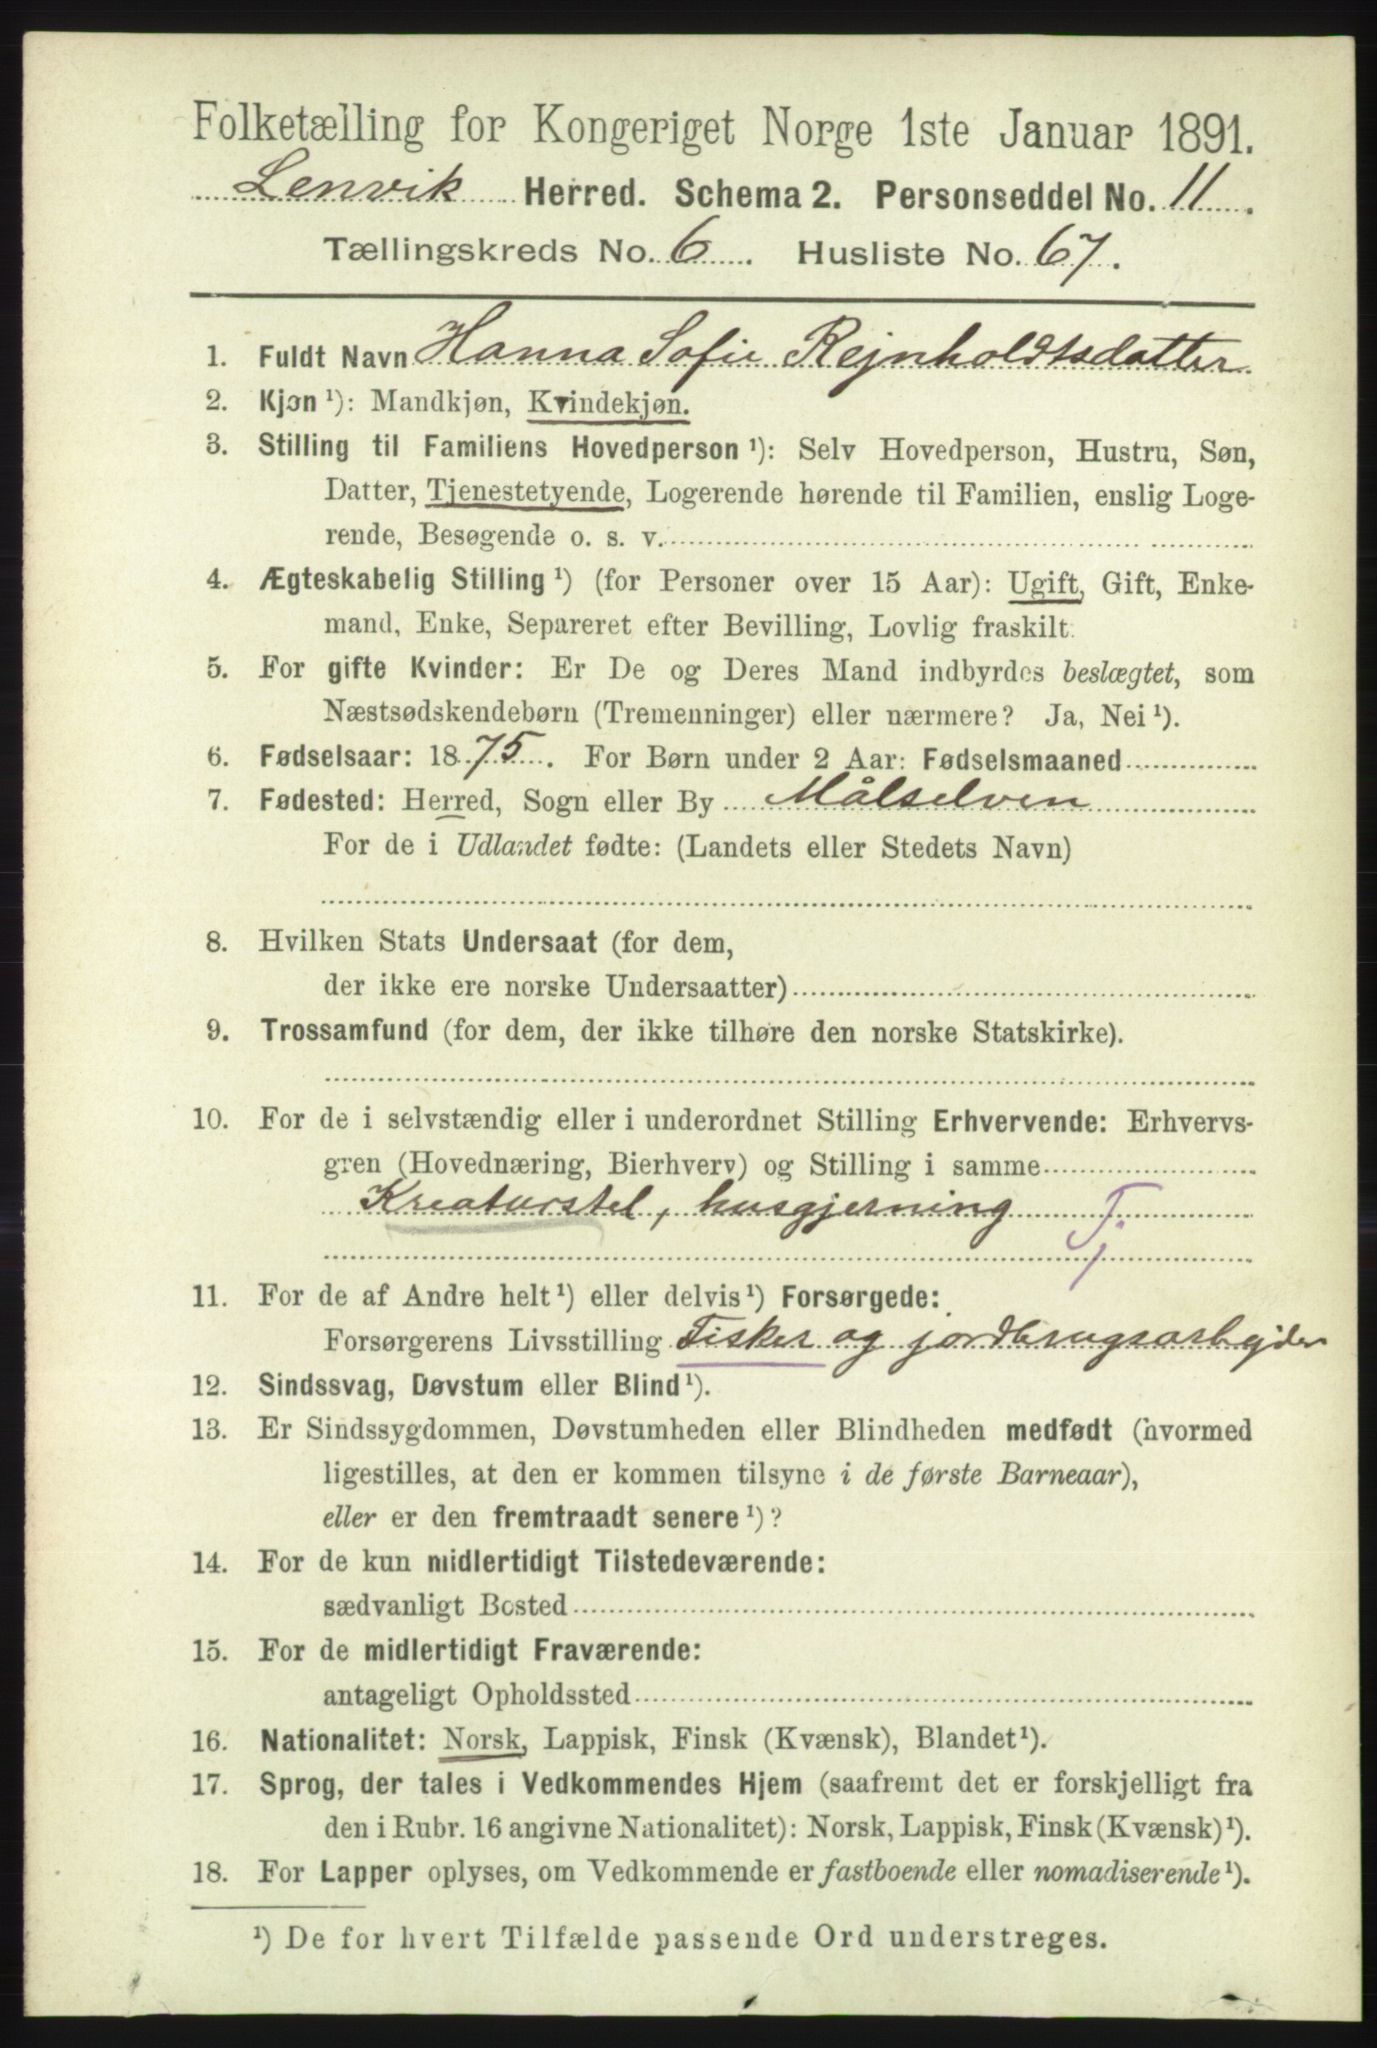 Folketælling for Kongeriget Norge 1ste Januar 1891.
Lenvik Herred. Schema 2. Personseddel No. 11.
Tællingskreds No. 6. Husliste No. 67.
1. Fuldt Navn Hanna Sofie Rejnholdtsdatter
2. Kjøn ¹): Mandkjøn, Kvindekjøn.
3. Stilling til Familiens Hovedperson ¹): Selv Hovedperson, Hustru, Søn,
Datter, Tjenestetyende, Logerende hørende til Familien, enslig Loge-
rende, Besøgende o. s. v.
4. Ægteskabelig Stilling ¹) (for Personer over 15 Aar): Ugift, Gift, Enke-
mand, Enke, Separeret efter Bevilling, Lovlig fraskilt.
5. For gifte Kvinder: Er De og Deres Mand indbyrdes beslægtet, som
Næstsødskendebørn (Tremenninger) eller nærmere? Ja, Nei ¹).
6. Fødselsaar: 1875. For Børn under 2 Aar: Fødselsmaaned
7. Fødested: Herred, Sogn eller By Målselven
For de i Udlandet fødte: (Landets eller Stedets Navn)
8. Hvilken Stats Undersaat (for dem,
der ikke ere norske Undersaatter)
9. Trossamfund (for dem, der ikke tilhøre den norske Statskirke).
10. For de i selvstændig eller i underordnet Stilling Erhvervende: Erhvervs-
gren (Hovednæring, Bierhverv) og Stilling i samme
Kreaturstel, husgjerning Tj
11. For de af Andre helt ¹) eller delvis ¹) Forsørgede:
Forsørgerens Livsstilling Fisker og jordbrugsarbejder
12. Sindssvag, Døvstum eller Blind ¹).
13. Er Sindssygdommen, Døvstumheden eller Blindheden medfødt (hvormed
ligestilles, at den er kommen tilsyne i de første Barneaar),
eller er den fremtraadt senere ¹)?
14. For de kun midlertidigt Tilstedeværende:
sædvanligt Bosted
15. For de midlertidigt Fraværende:
antageligt Opholdssted
16. Nationalitet: Norsk, Lappisk, Finsk (Kvænsk), Blandet ¹).
17. Sprog, der tales i Vedkommendes Hjem (saafremt det er forskjelligt fra
den i Rubr. 16 angivne Nationalitet): Norsk, Lappisk, Finsk (Kvænsk) ¹).
18. For Lapper oplyses, om Vedkommende er fastboende eller nomadiserende ¹).
¹) De for hvert Tilfælde passende Ord understreges.